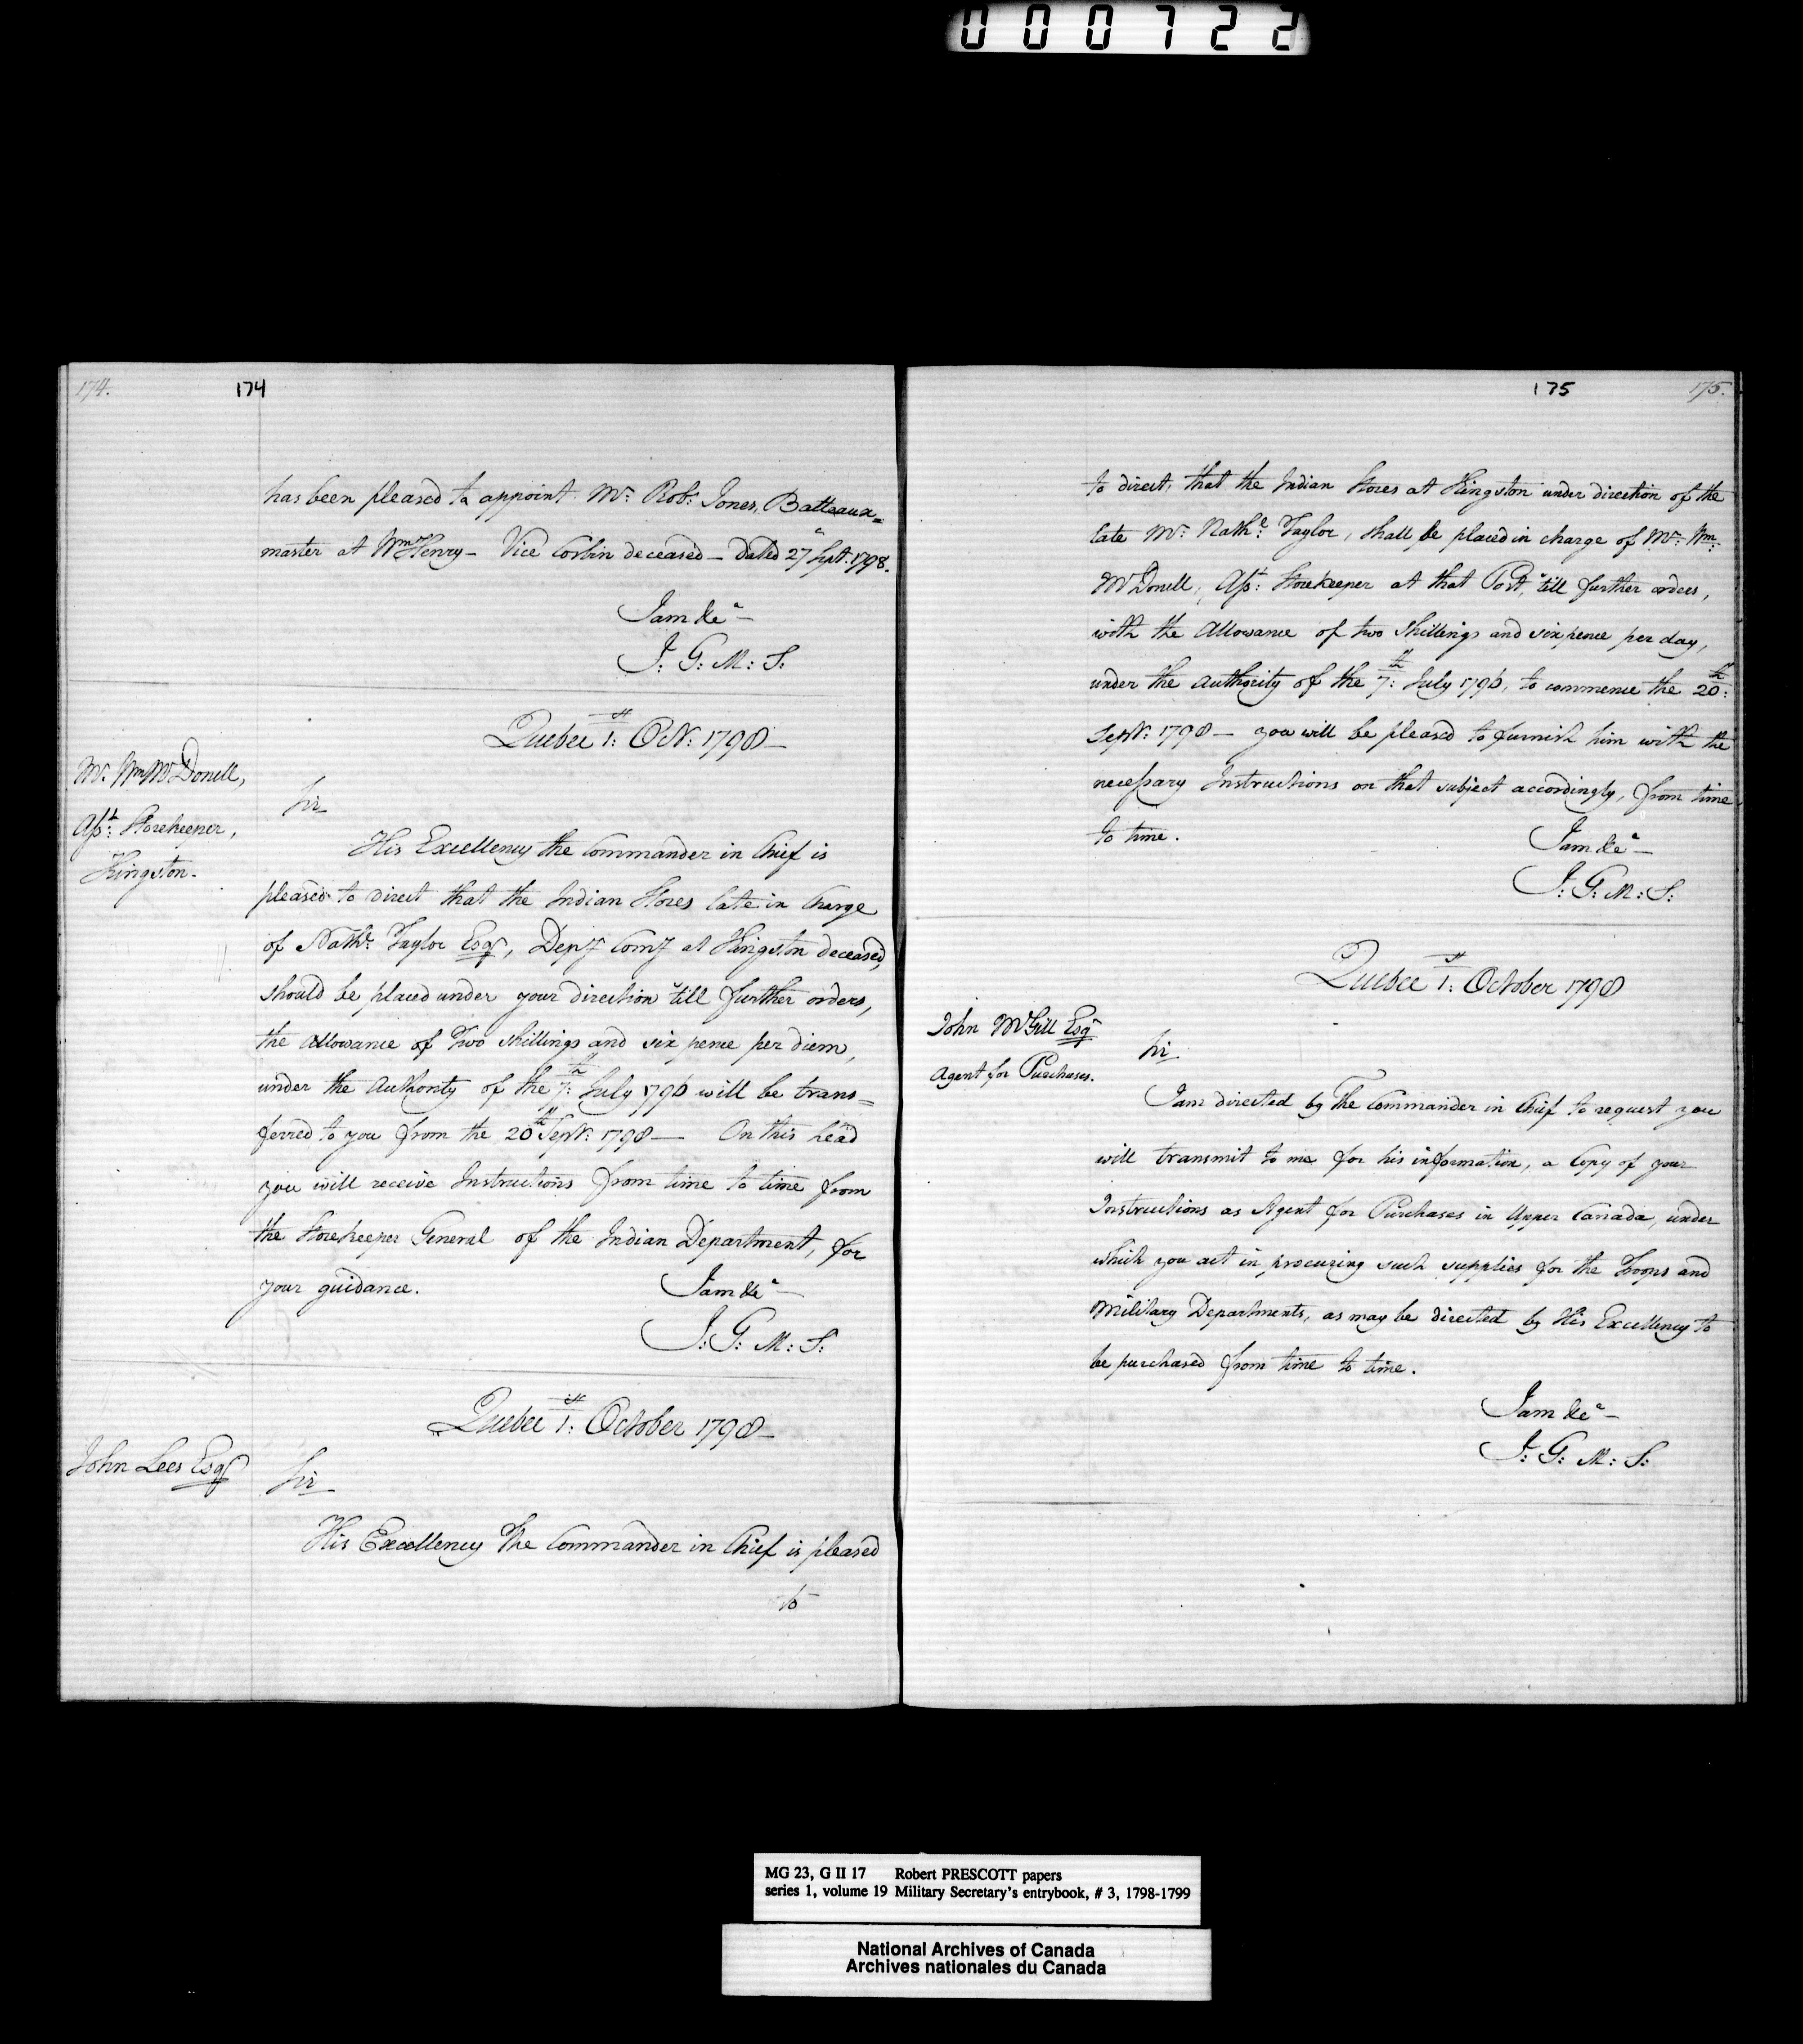 000722
174.
174
has been pleased to appoint Mr. Robt. Jones, Batteaux=
master at Wm Henry – Vice Corbin deceased – dated 27 Sept. 1798.
I am &ca –
J: G: M: S:
Quebec 1st: Octr: 1798 –
Mr. Wm McDonell,
Asst: Storekeeper,
Kingston.
Sir
His Excellency the Commander in Chief is
pleased to direct that the Indian Stores late in Charge
of Nathl. Taylor Esqr, Depy Comy at Kingston deceased,
should be placed under your direction 'till further orders,
the Allowance of Two shillings and six pence per diem,
under the Authority of the 7th: July 1796 will be trans=
ferred to you from the 20th Septr: 1798 — On this head
you will receive Instructions from time to time from
the Storekeeper General of the Indian Department, for
your guidance.
I am &ca –
J: G: M: S:
Quebec 1st: October 1798 –
John Lees Esqr
Sir
His Excellency The Commander in Chief is pleased
to
175
175.
to direct, that the Indian Stores at Kingston under direction of the
late Mr. Nathl: Taylor, shall be placed in charge of Mr. Wm:
McDonell, Asst: Storekeeper at that Post, 'till further orders,
with the Allowance of two shillings and six pence per day,
under the Authority of the 7th: July 1796, to commence the 20th:
Septr: 1798 – you will be pleased to furnish him with the
necessary Instructions on that subject accordingly, from time
to time.
I am &ca –
J: G: M: S:
Quebec 1st: October 1798
John McGill Esqr
Agent for Purchases.
Sir
I am directed by The Commander in Chief to request you
will transmit to me for his information, a Copy of your
Instructions as Agent for Purchases in Upper Canada, under
which you act in procuring such supplies for the Troops and
Military Departments, as may be directed by His Excellency to
be purchased from time to time.
I am &ca –
J: G: M: S:
MG 23, G II 17 Robert PRESCOTT papers
series 1, volume 19 Military Secretary's entrybook, # 3, 1798-1799
National Archives of Canada
Archives nationales du Canada